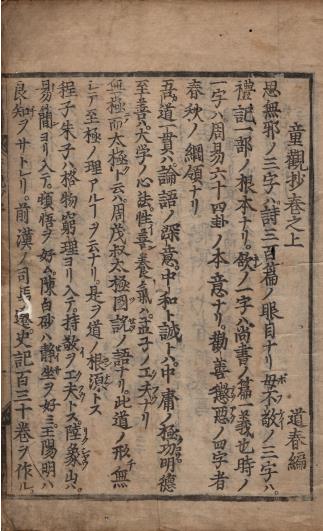 童觀抄卷之上
道春編
思無邪ノ三字ハ詩三百篇ノ眼目ナリ毋不敬ノ三字ハ
禮記一部ノ根本ナリ欽ノ一字ハ尚書ノ篇義也時ノ
一字ハ周易六十四卦ノ本意ナリ勸善懲惡ノ四字者
春秋ノ綱領ナリ
吾道一貫ハ論語ノ深意中和ト誠トハ中庸ノ極功明德
至善ハ大学ノ心法性善養氣ハ孟子ノ工夫ナリ
無極而太極ト云ハ周茂叔太極圖說ノ語ナリ此道ノ形無
シテ至極ノ理アルヲ云ナリ是ヲ道ノ根源トス
程子朱子ハ格物窮理ヨリ入テ持敬ヲ工夫トス陸象山ハ
易簡ヨリ入テ頓悟ヲ好ム陳白砂ハ靜坐ヲ好ミ王陽明ハ
良知ヲサトレリ前漢ノ司馬遷史記百三十卷ヲ作ル